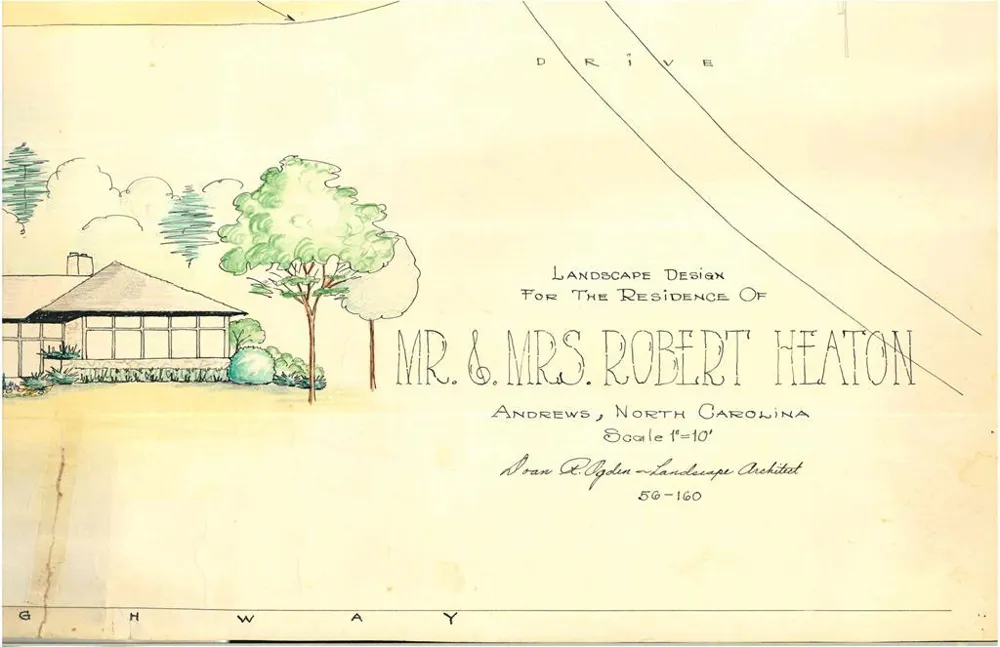 DRiVE
LANDSCAPE DESIGN
FOR THE RESIDENCE OF
MR. & MRS. ROBERT HEATON
ANDREWS, NORTH CAROLINA
Scale 1"=10'
Doan R. Ogden ~ Landscape Architect
56-160
GHWAY